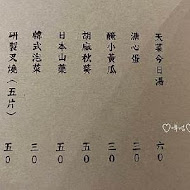 天菜今日湯 六〇
溏心蛋 二〇
醃小黃瓜 三〇
胡麻秋葵 五〇
日本山藥 五〇
韓式泡菜 三〇
研製叉燒（五片） 五〇